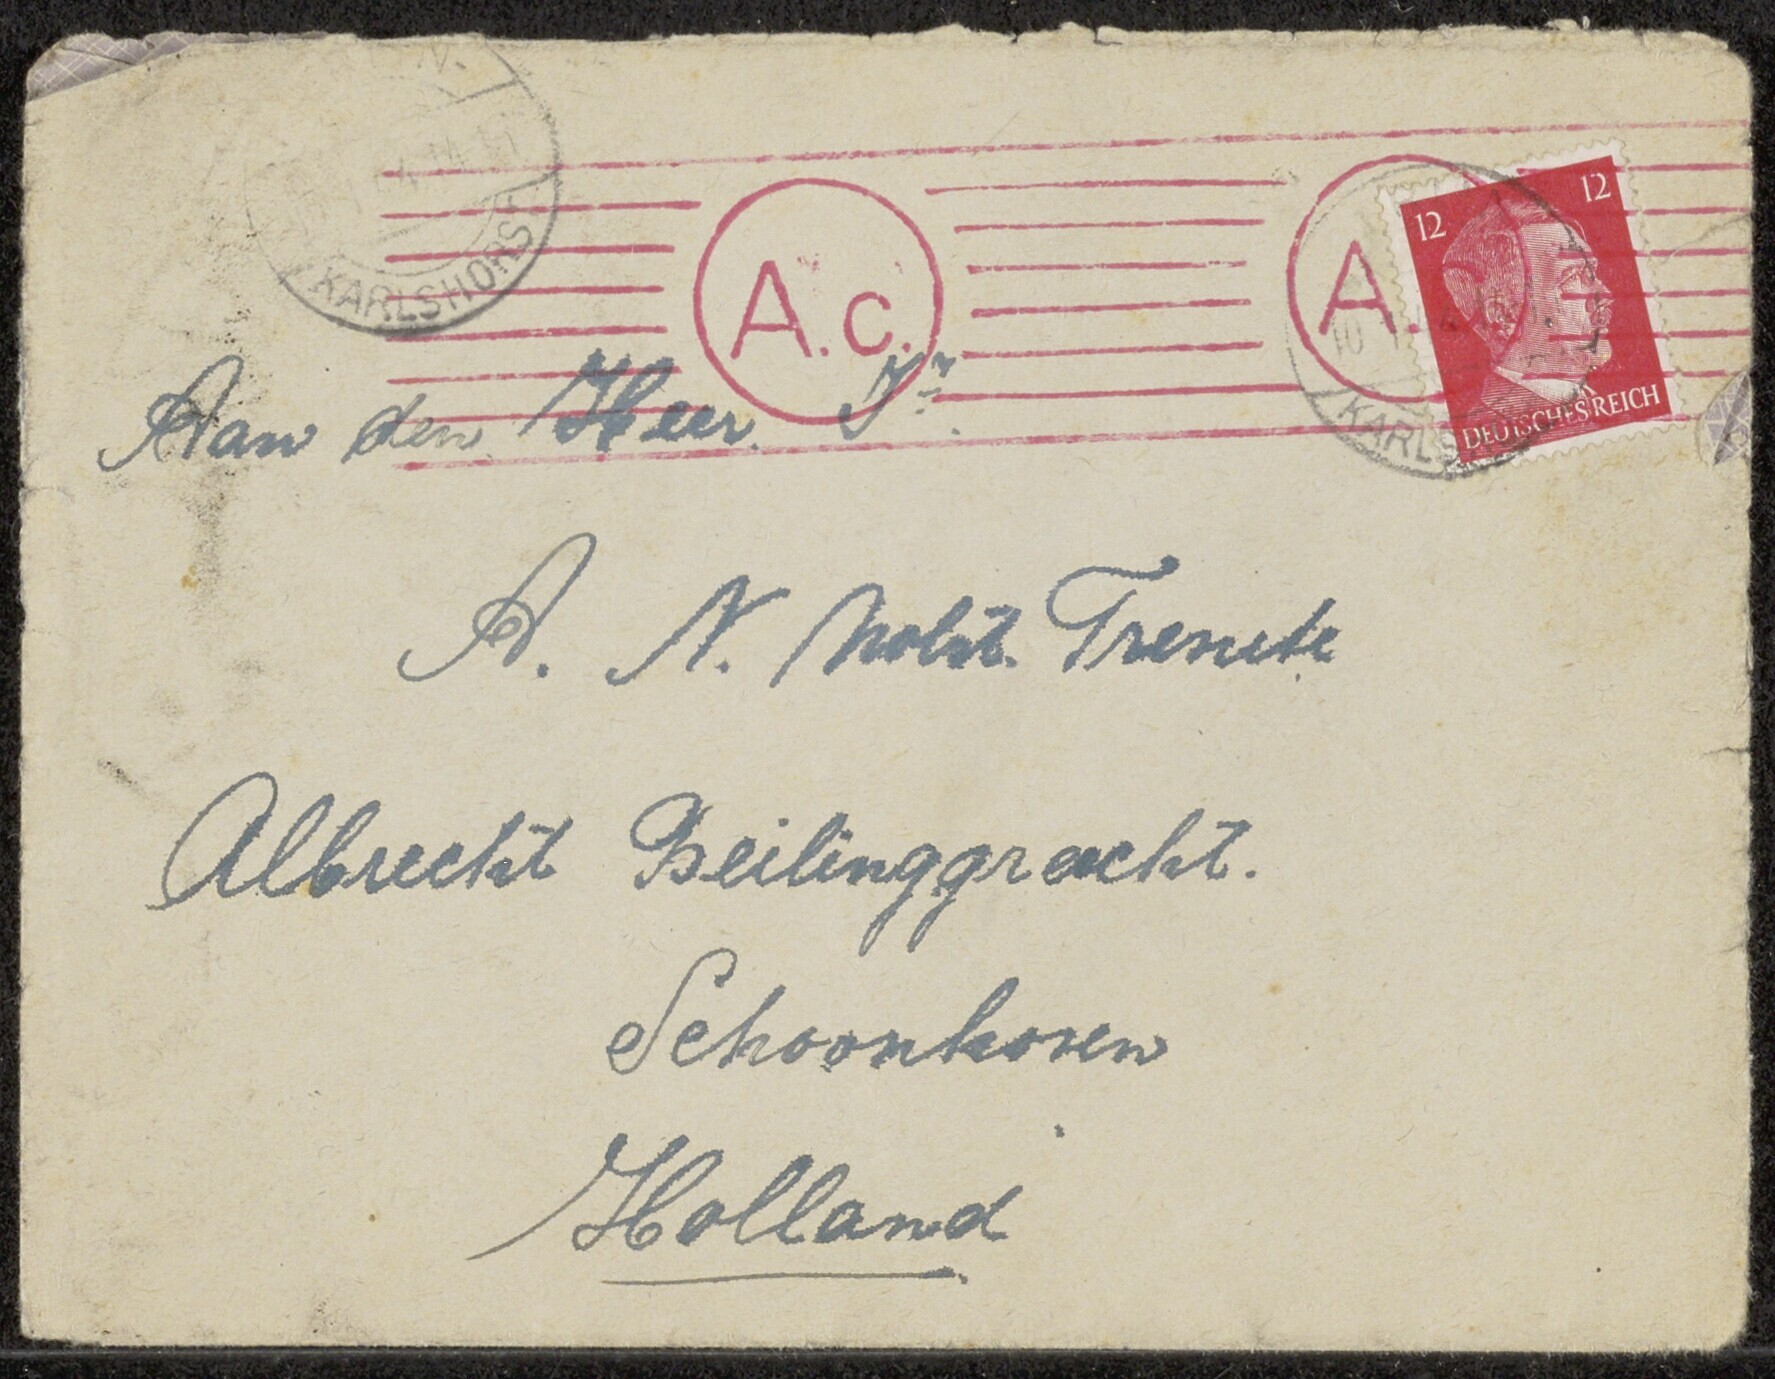 KARLSHORST
A.c.
A.
12
12
DEUTSCHES REICH
KARLS
Aan den Heer Jr.
A. N. Nolst. Trenite
Albrecht Beilinggracht.
Schoonhoven
Holland